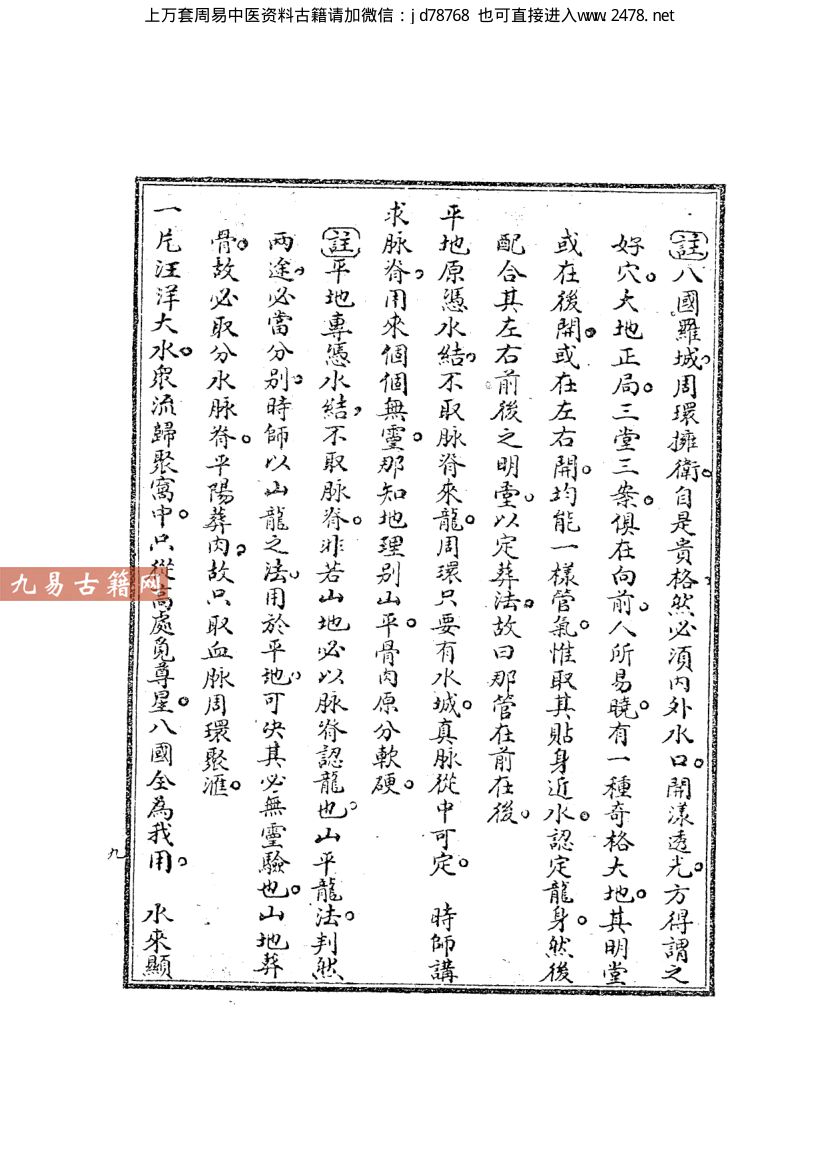 上万套周易中医资料古籍请加微信：jd78768 也可直接进入www.2478.net
註八國羅城，周環擁衛。自是貴格，然必須內外水口。開漾透光。方得謂之
好穴。大地正局。三堂三案。俱在向前。人所易曉。有一種奇格大地。其明堂
或在後開。或在左右開。均能一樣管氣。惟取其貼身近水。認定龍身。然後
配合其左右前後之明堂。以定葬法。故曰那管在前在後。
平地原憑水結。不取脉脊來龍。周環只要有水城。真脉從中可定。 時師講
求脉脊。用來個個無靈。那知地理別山平。骨肉原分軟硬。
註平地專憑水結，不取脉脊。非若山地必以脉脊認龍也。山平龍法。判然
兩途。必當分別。時師以山龍之法。用於平地。可决其必無靈驗也。山地葬
骨。故必取分水脉脊。平陽葬肉。故只取血脉周環聚滙。
一片汪洋大水。衆流歸聚寓中。只從高處覓尊星。八國全為我用。 水來顯
九
九易古籍网